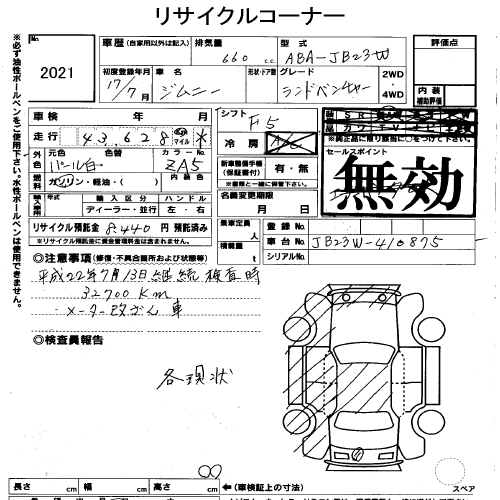 リサイクルコーナー
※必ず油性ボールペンをご使用下さい。水性ボールペンは使用できません。
No.
2021
車歴(自家用以外は記入)
排気量
660 c.c.
型式
ABA-JB23W
評価点
初度登録年月
17/7月
車名
ジムニー
形状・ドア数
グレード
ランドベンチャー
2WD
4WD
内装
補助評価
車検 年 月
シフト F5
走行 43,628 マイル
冷房
※真正品に限り装備に○をつけて下さい
セールスポイント
無効
外色
元色 色替
パール白
カラーNo.
ZA5
内装色
燃料
ガソリン・軽油・( )
新車整備手帳(保証書付)
有・無
※書類と一緒に保管下さい。
輸入車
輸入区分 ハンドル
ディーラー・並行 左・右
名義変更期限
月 日
リサイクル預託金 8440円 預託済み
※リサイクル預託金に資金管理料金は含まれません。
乗車定員
人
積載量
t
登録No.
車台No. JB23W-410875
シリアルNo.
◎注意事項(修復・不具合箇所および状態等)
平成22年7月13日継続検査時
32700Km
メーター改ざん車
◎検査員報告
各現状
長さ cm 幅 cm 高さ cm
←(車検証上の寸法)
スペア